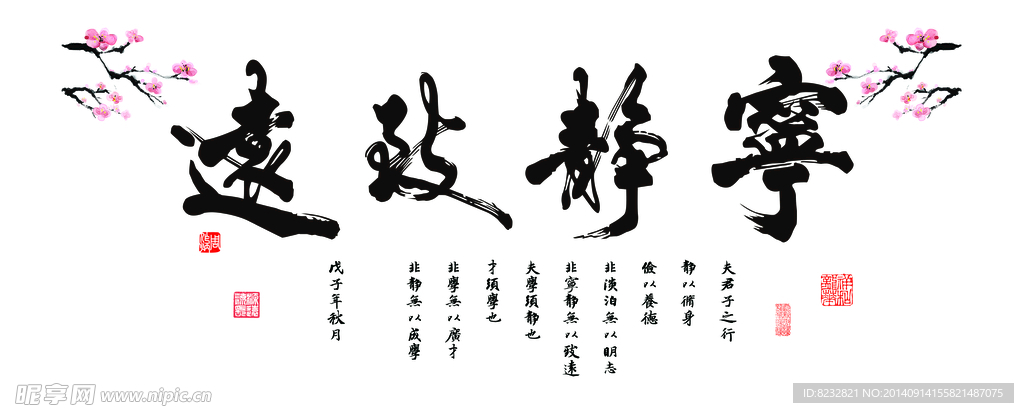 寧靜致遠
夫君子之行
靜以脩身
儉以養德
非淡泊無以明志
非寧靜無以致遠
夫學須靜也
才須學也
非學無以廣才
非靜無以成學
戊子年秋月
昵享网 www.nipic.cn
ID:8232821 NO:20140914155821487075